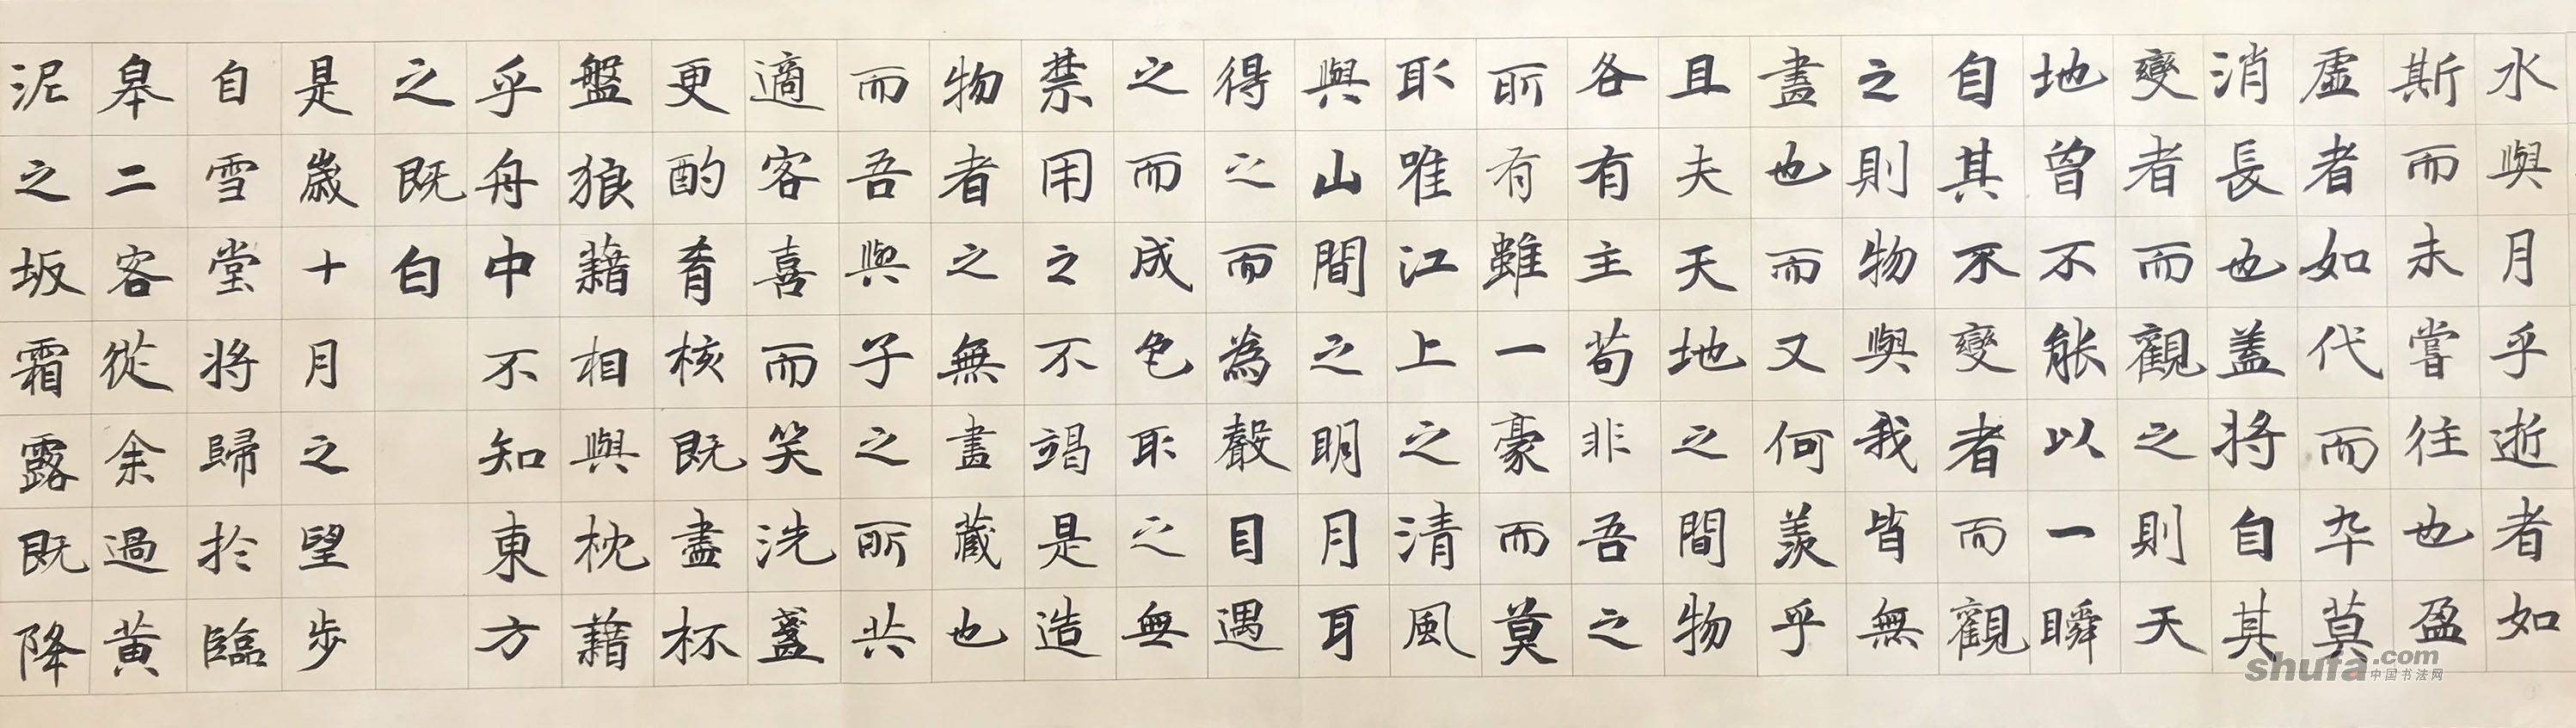 水與月乎逝者如
斯而未嘗往也盈
虛者如代而卒莫
消長也蓋將自其
變者而觀之則天
地曾不能以一瞬
自其不變者而觀
之則物與我皆無
盡也而又何羨乎
且夫天地之間物
各有主苟非吾之
所有雖一豪而莫
取唯江上之清風
與山間之明月耳
得之而為聲目遇
之而成色取之無
禁用之不竭是造
物者之無盡藏也
而吾與子之所共
適客喜而笑洗盞
更酌肴核既盡杯
盤狼藉相與枕藉
乎舟中不知東方
之既白
是歲十月之望步
自雪堂將歸於臨
皋二客從余過黃
泥之坂霜露既降
shufa.com
中国书法网